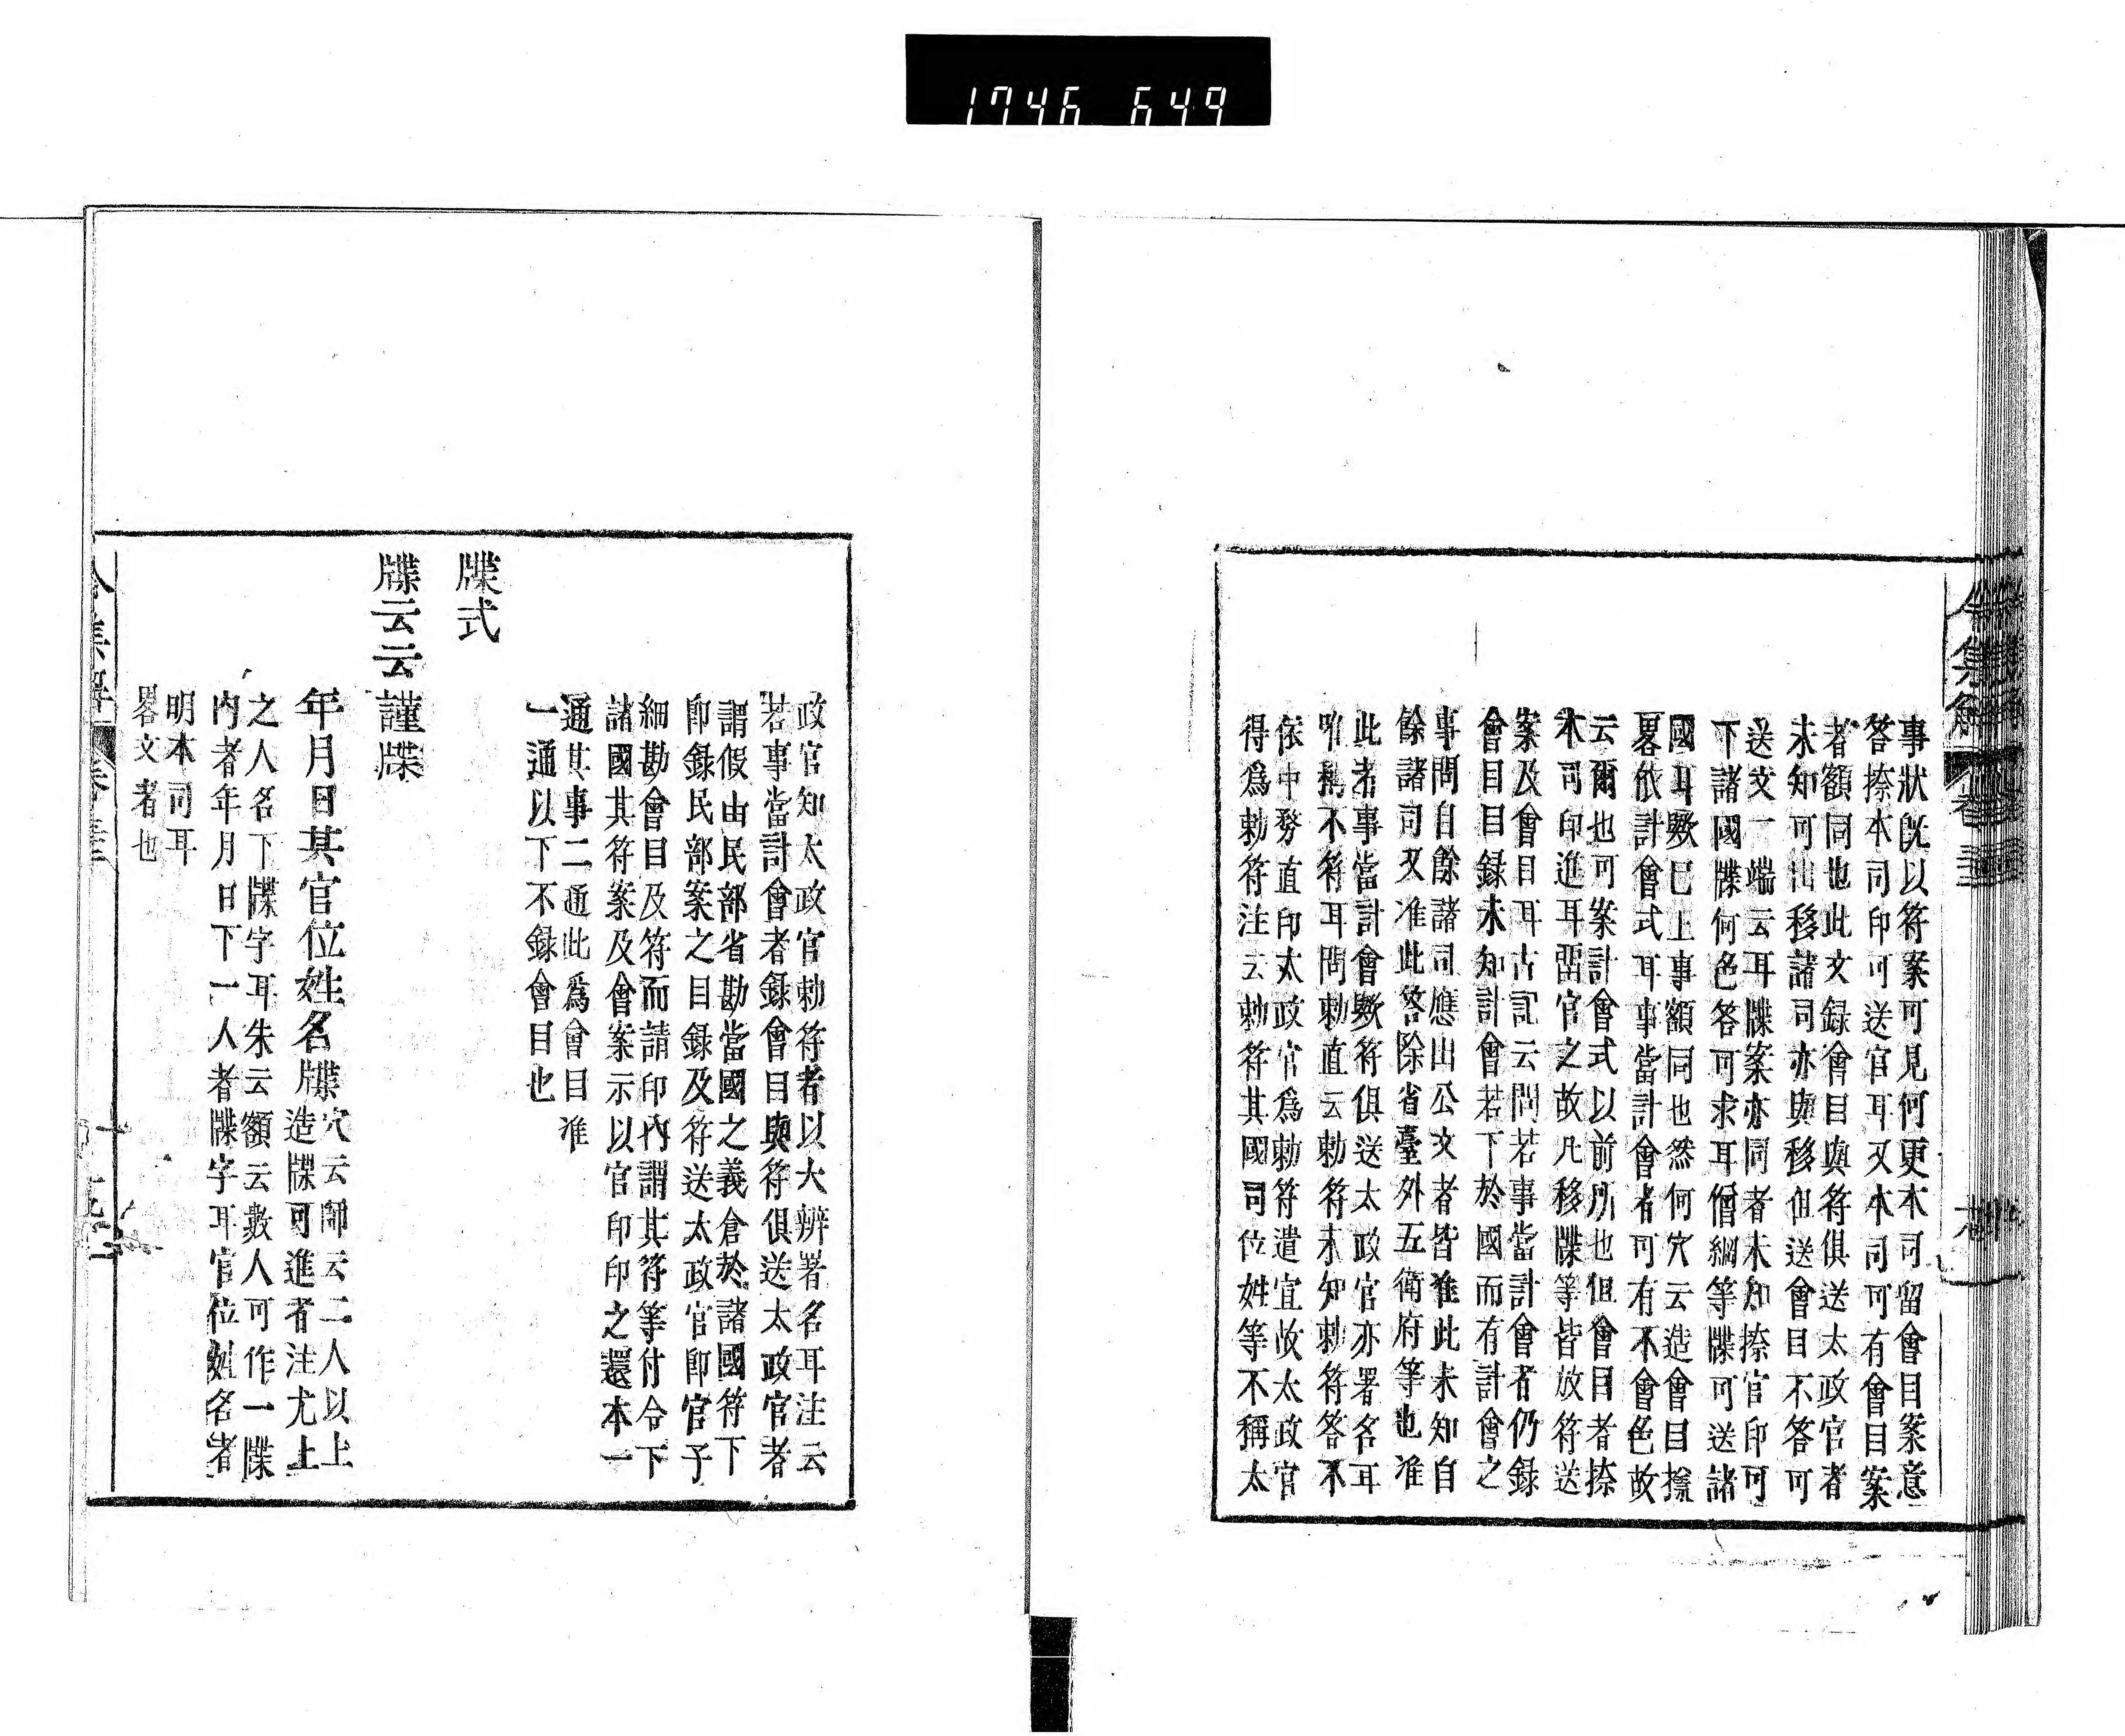 1746 649
事狀旣以符案可見何更本司留會目案意
答捺本司印可送官耳又本司可有會目案
者額同也此文録會目與符俱送太政官者
未知可出移諸司亦與移但送會目不答可
送文一端云耳牒案亦同者未知捺官印可
下諸國牒何色答可求耳僧綱等牒可送諸
國耳歟已上事額同也然何穴云造會目㨿
畧依計會式耳事當計會者可有不會色故
云爾也可案計會式以前所也但會目者捺
本司印進耳留官之故凡移牒等皆放符送
案及會目耳古記云問若事當計會者仍録
會目目録未知計會若下於國而有計會之
事問自餘諸司應出公文者皆准此未知自
餘諸司又准此答除省臺外五衛府等也准
此者事當計會歟符俱送太政官亦署名耳
唯稱不符耳問勅直云勅符未知勅符答不
依中務直印太政官爲勅符遣宜故太政官
得爲勅符注云勅符其國司位姓等不稱太
令集解 卷三
政官知太政官勅符者以大辨署名耳注云
若事當計會者録會目與符俱送太政官者
謂假由民部省勘當國之義倉於諸國符下
卽録民部案之目録及符送太政官卽官予
細勘會目及符而請印內謂其符等付令下
諸國其符案及會案示以官印印之還本一
通其事二通此爲會目准
一通以下不録會目也
牒式
牒云云謹牒
年月日其官位姓名牒穴云師云二人以上
造牒可進者注尤上
之人名下牒字耳朱云額云數人可作一牒
內者年月日下一人者牒字耳官位姓名者
明本司耳
畧文者也